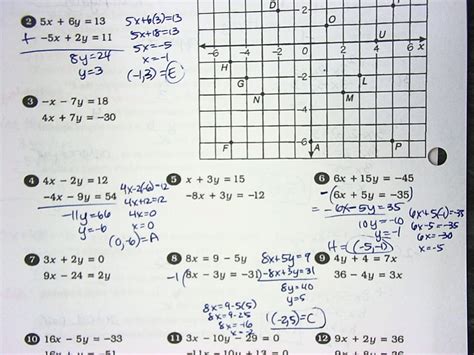 ② 5x + 6y = 13
+ -5x + 2y = 11
8y = 24
y = 3
5x + 6(3) = 13
5x + 18 = 13
5x = -5
x = -1
(-1, 3) = E
③ -x - 7y = 18
4x + 7y = -00
④ 4x - 2y = 12
-4x - 9y = 54
-11y = 66
y = -6
4x - 2(-6) = 12
4x + 12 = 12
4x = 0
x = 0
(0, -6) = A
⑤ x + 3y = 15
-8x + 3y = -12
⑥ 6x + 15y = -45
-(6x + 5y = -35)
= -6x - 5y = 35
10y = -10
y = -1
6x + 5(-1) = -35
6x - 5 = -35
6x = -30
x = -5
H = (-5, -1)
⑦ 3x + 2y = 0
9x - 24 = 2y
⑧ 8x = 9 - 5y
-1(8x - 3y = -31)
8x + 5y = 9
-8x + 3y = 31
8y = 40
y = 5
8x = 9 - 5(5)
8x = 9 - 25
8x = -16
x = -2
(-2, 5) = C
⑨ 4y + 4 = 7x
36 - 4y = 3x
⑩ 16x - 5y = -33
⑪ 3x - 10y - 29 = 0
⑫ 9x + 2y = 36
D
-6 -4 -2 0 2 4 6
x
U
H
G
N
L
M
F
-6
A
P